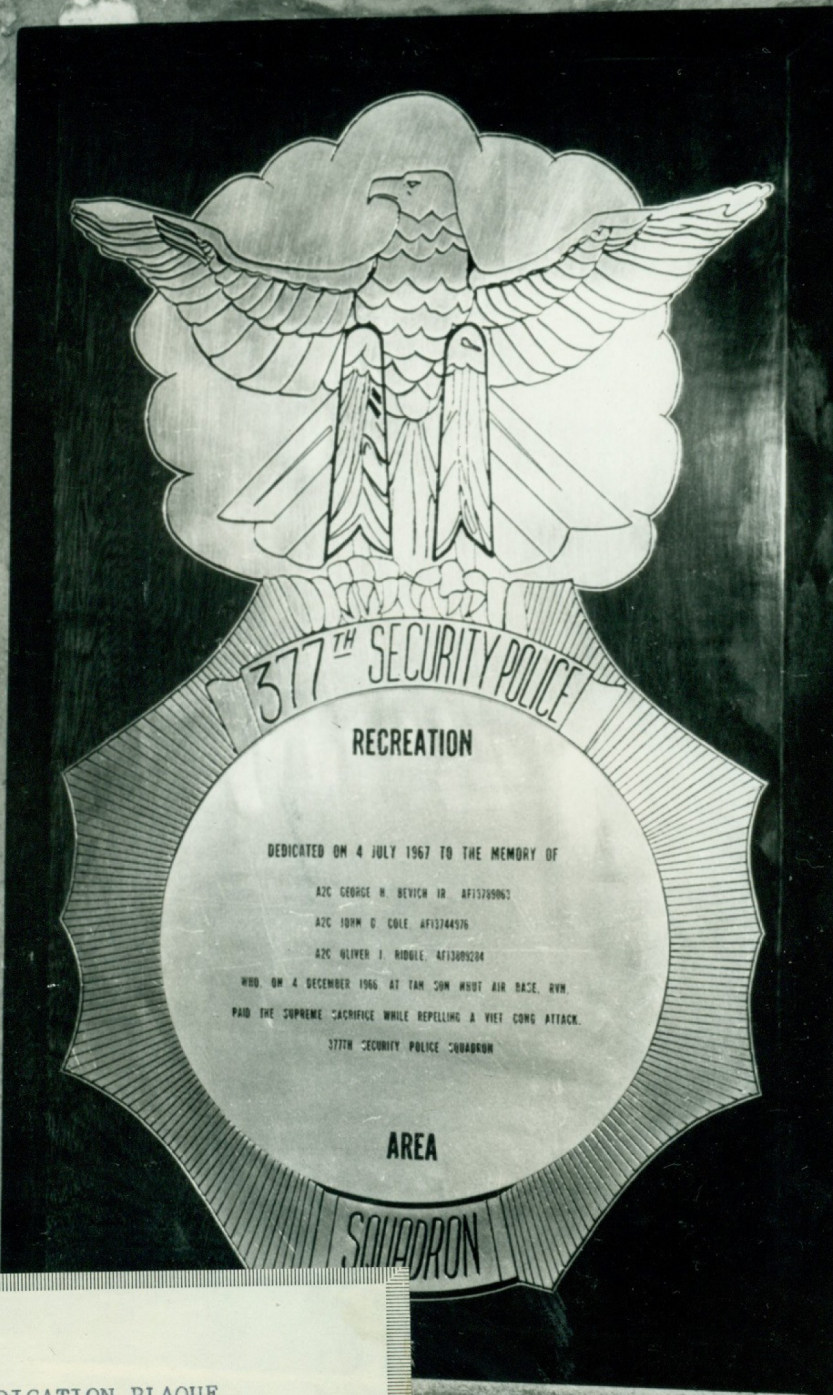 377TH SECURITY POLICE
RECREATION
DEDICATED ON 4 JULY 1967 TO THE MEMORY OF
A2C GEORGE H. BEVICH JR. AF13789063
A2C JOHN G. COLE, AF13744976
A2C OLIVER J. RIDDLE, AF13809284
WHO, ON 4 DECEMBER 1966 AT TAN SON NHUT AIR BASE, RVN,
PAID THE SUPREME SACRIFICE WHILE REPELLING A VIET CONG ATTACK.
377TH SECURITY POLICE SQUADRON
AREA
SQUADRON
DICATION PLAQUE